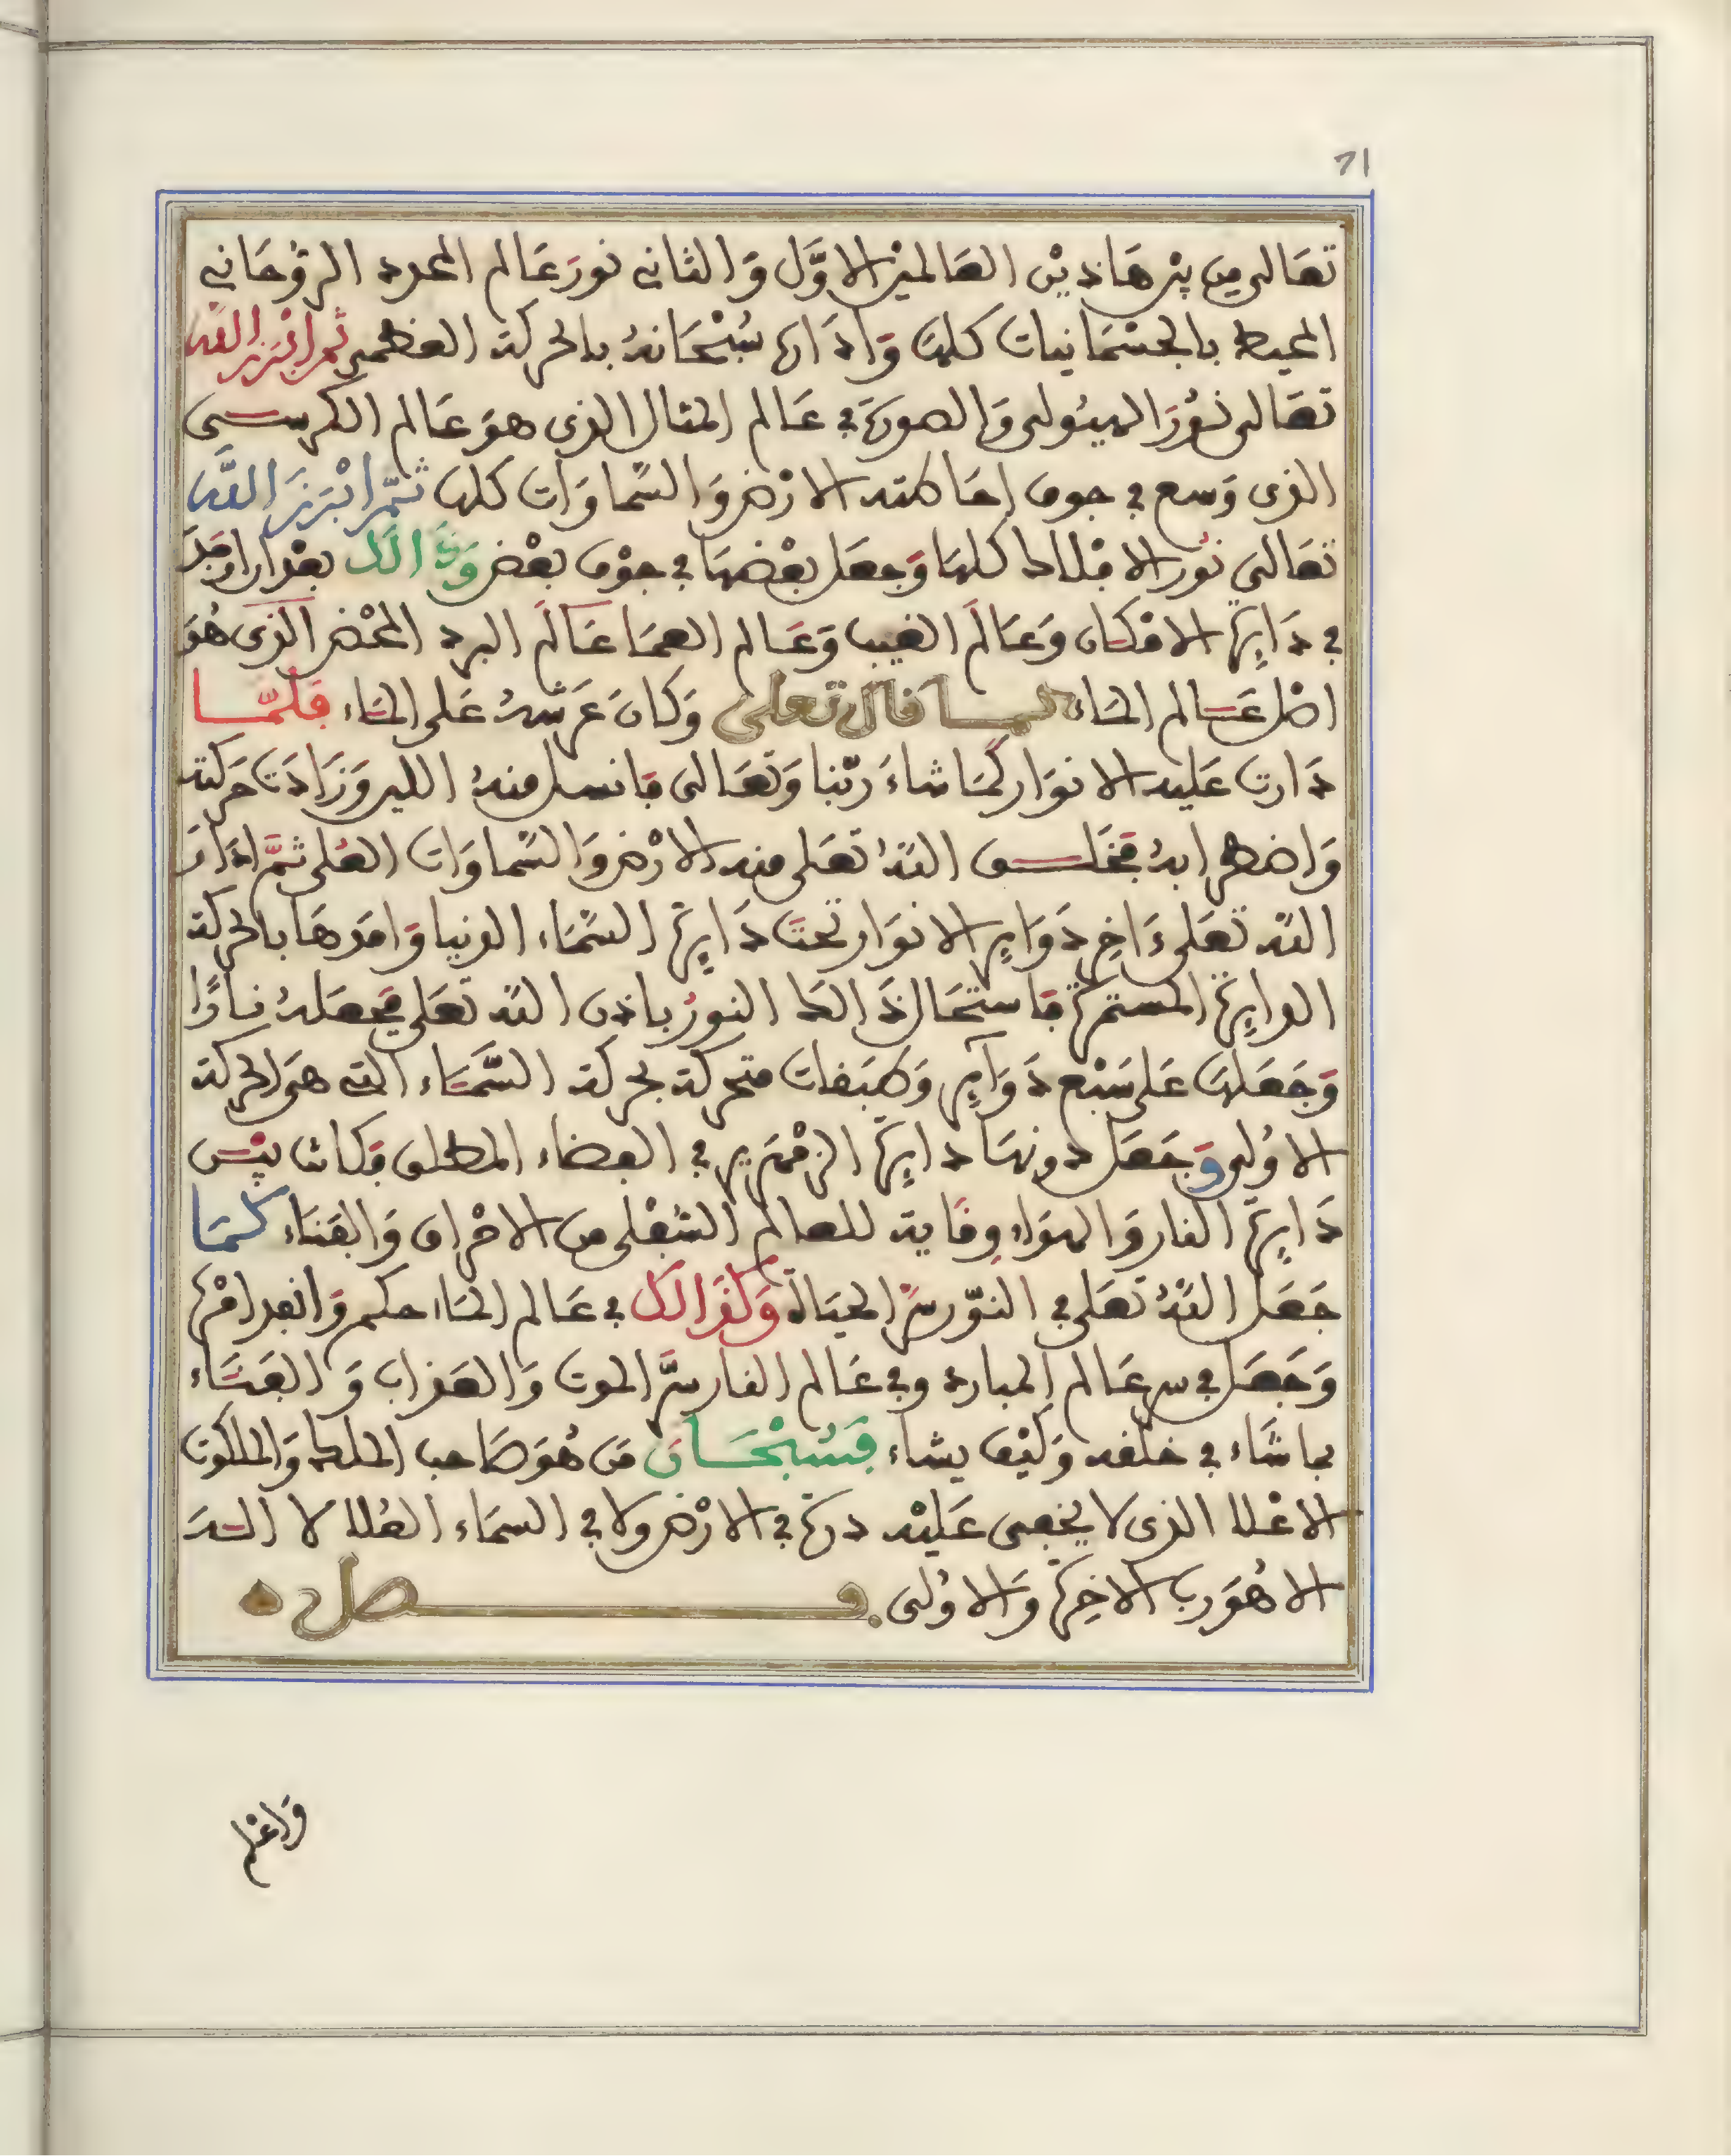 71
تعالى من بين هاذين العالمين الاول والثاني نور عالم المحدد الروحاني
المحيط بالجسمانيات كلها وادارها سبحانه بالحركة العظمى ثم ابرز الله
تعالى نور الهيولى والصورة في عالم المثال الذي هو عالم الكرسي
الذي وسع في جوف احاطته الارض والسماوات كلها ثم ابرز الله
تعالى نور الافلاك كلها وجعل بعضها في جوف بعض وذالك بعد ان اوجد
في دايرة الامكان وعالم الغيب وعالم العما عالم البرد المحض الذي هو
اصل عالم الماء كما قال تعلى وكان عرشه على الماء فلما
دارت عليه الانوار كما شاء ربنا وتعالى فانسل منه الليل وزادت حركته
واضطرابه فخلق الله تعلى منه الارض والسماوات العلى ثم ادار
الله تعلى ءاخر دواير الانوار تحت دايرة السماء الدنيا وامدها بالحركة
الدايرة المستمرة فاستحال ذالك النور باذن الله تعلى فجعله نارا
وجعلها على سبع دواير وطبقات متحركة بحركة السماء التي هي الحركة
الاولى وجعل دونها دايرة الزمهرير في الفضاء المطلق فكانت بين
دايرة النار والهواء وقاية للعالم السفلي من الاحراق والفناء كما
جعل الله تعلى في النور سر الحياة وكذالك في عالم الماء حكم وانفد امره
وجعل في سر عالم المبارد وفي عالم النار سر الموت والعذاب والفناء
بما شاء في خلقه وكيف يشاء فسبحان من هو صاحب الملك والملكوت
الاعلا الذي لا يخفى عليه درة في الارض ولا في السماء العلا لا اله
الا هو رب الاخرة والاولى . فصل
واعلم